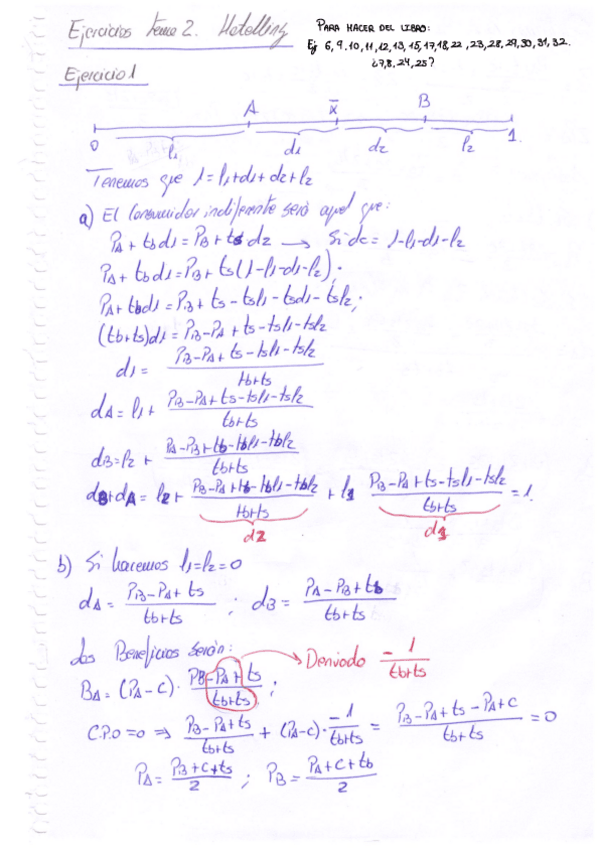 Ejercicios tema 2. Hotelling
PARA HACER DEL LIBRO:
Ej 6, 9, 10, 11, 12, 13, 15, 17, 18, 22, 23, 28, 29, 30, 31, 32.
¿7, 8, 24, 25?
Ejercicio 1
A x̄ B
0 l1 d1 d2 l2 1
Tenemos que 1 = l1+d1+d2+l2
a) El consumidor indiferente será aquel que:
PA + tb d1 = PB + ts d2 → Si d2 = 1-l1-d1-l2
PA + tb d1 = PB + ts(1-l1-d1-l2);
PA + tb d1 = PB + ts - tsl1 - tsd1 - tsl2;
(tb+ts)d1 = PB-PA + ts - tsl1 - tsl2
d1 = (PB-PA + ts - tsl1 - tsl2)/(tb+ts)
dA = l1 + (PB-PA + ts - tsl1 - tsl2)/(tb+ts)
dB = l2 + (PA-PB + tb - tbl1 - tbl2)/(tb+ts)
dB+dA = l2 + (PB-PA + tb - tbl1 - tbl2)/(tb+ts) + l1 (PB-PA + ts - tsl1 - tsl2)/(tb+ts) = 1.
d2 d1
b) Si hacemos l1=l2=0
dA = (PB-PA + ts)/(tb+ts) ; dB = (PA-PB + tb)/(tb+ts)
Los Beneficios serán:
BA = (PA-c) · (PB-PA + ts)/(tb+ts) ; → Derivado -1/(tb+ts)
C.P.O =0 ⇒ (PB-PA+ts)/(tb+ts) + (PA-c) · -1/(tb+ts) = (PB-PA+ts-PA+c)/(tb+ts) = 0
PA = (PB+c+ts)/2 ; PB = (PA+c+tb)/2